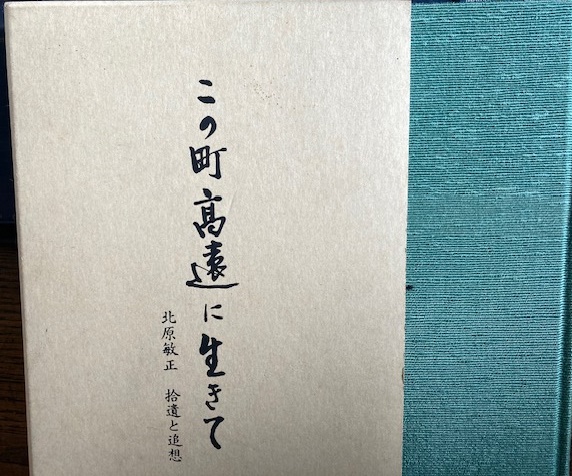 この町高遠に生きて
北原敏正　拾遺と追想